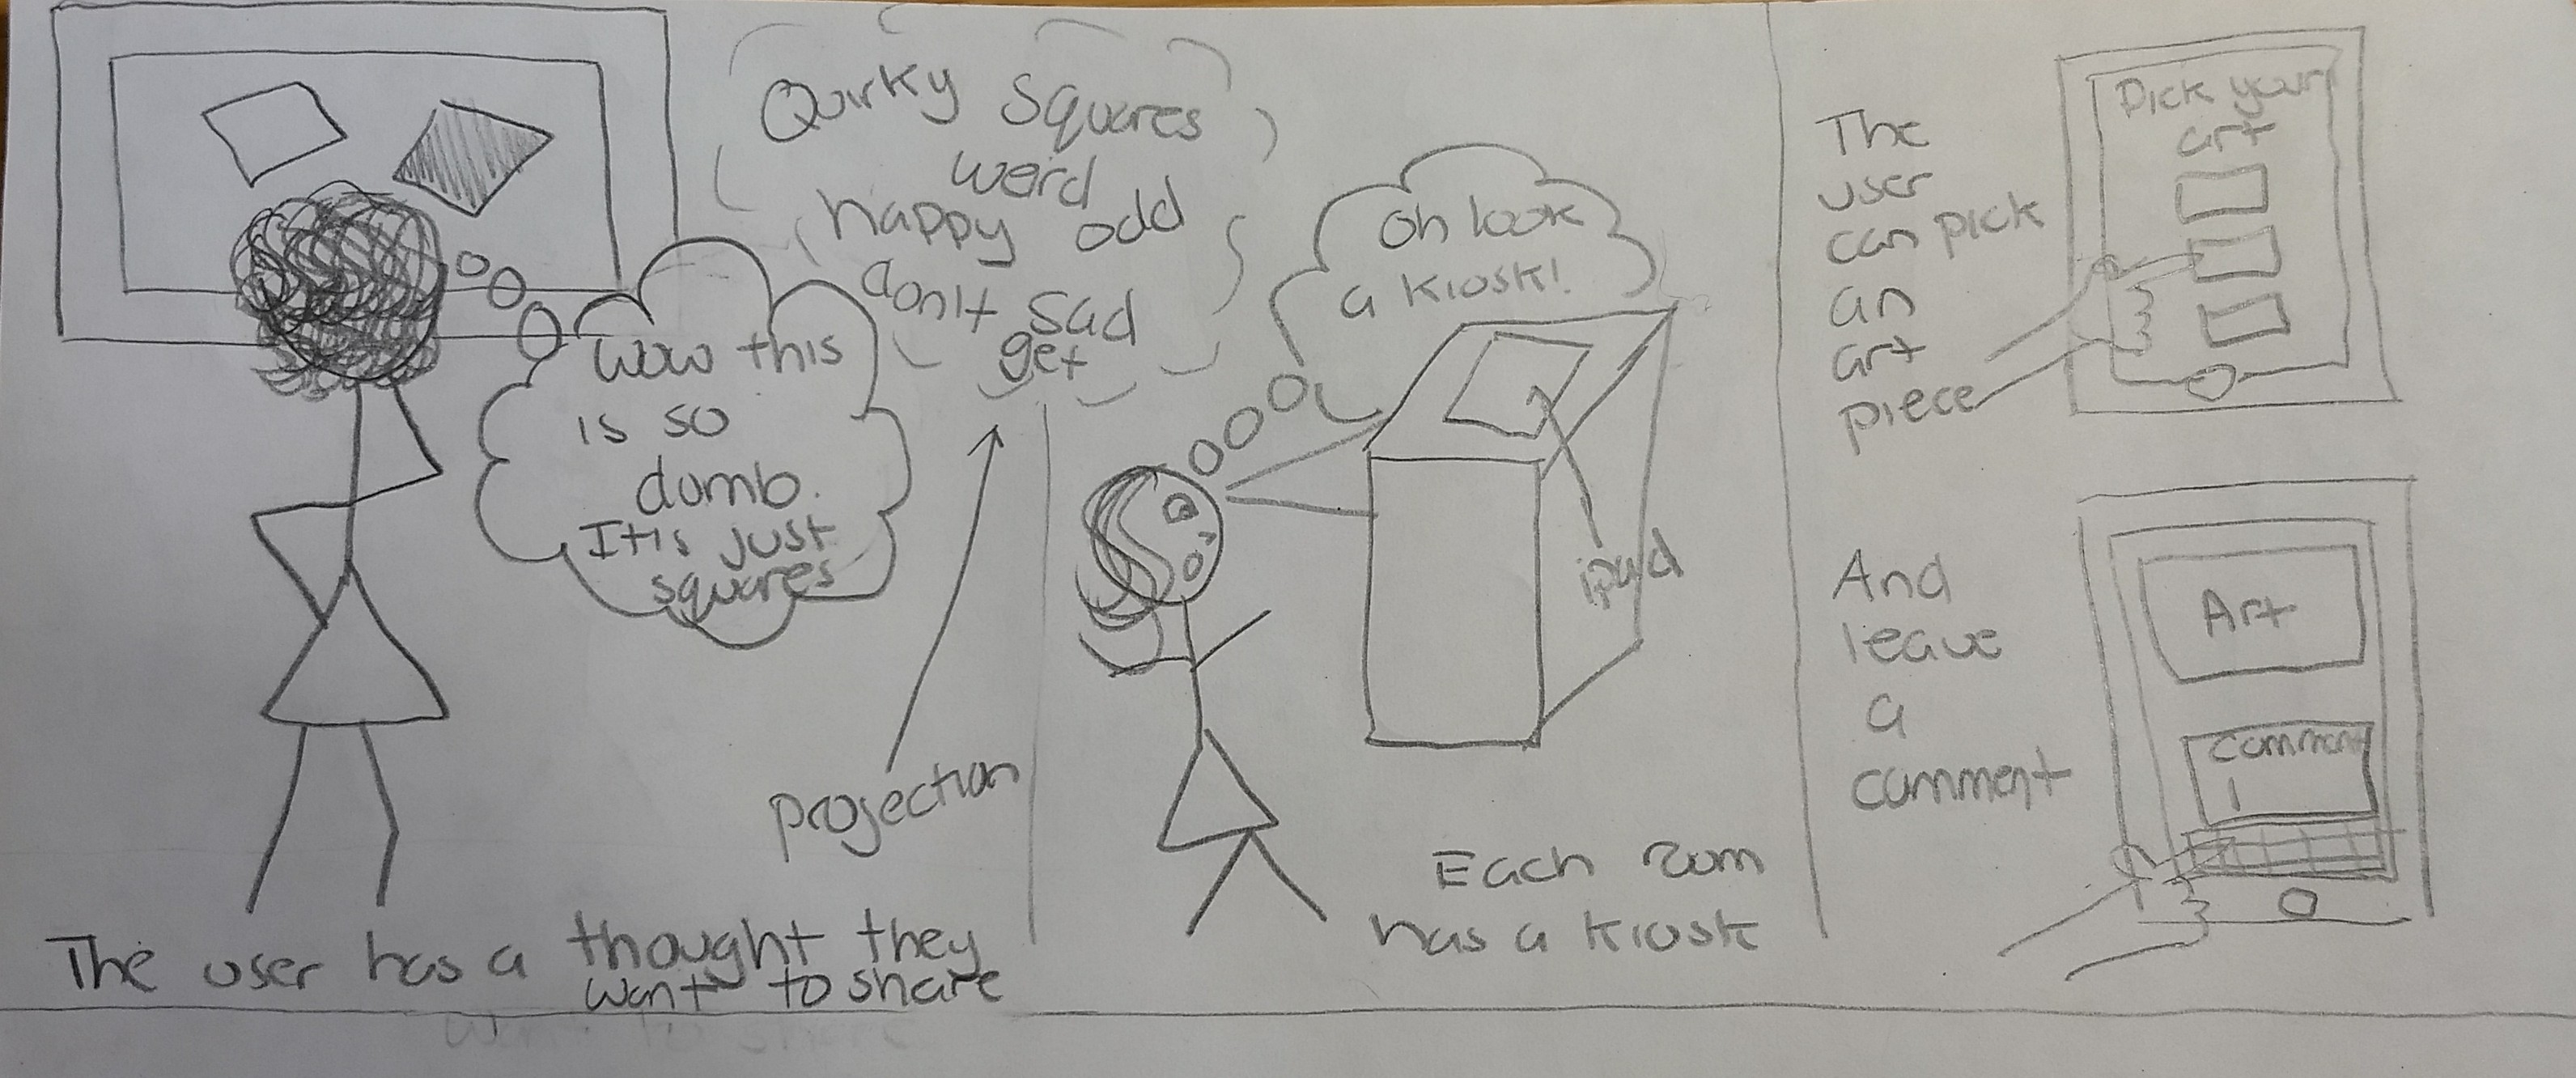 Quirky Squares
weird
happy odd
don't sad
get
wow this
is so
dumb.
It is just
squares
projection
The user has a thought they
want to share
Oh look
a kiosk!
ipad
Each room
has a kiosk
The
user
can pick
an
art
piece
Pick your
art
And
leave
a
comment
Art
comment